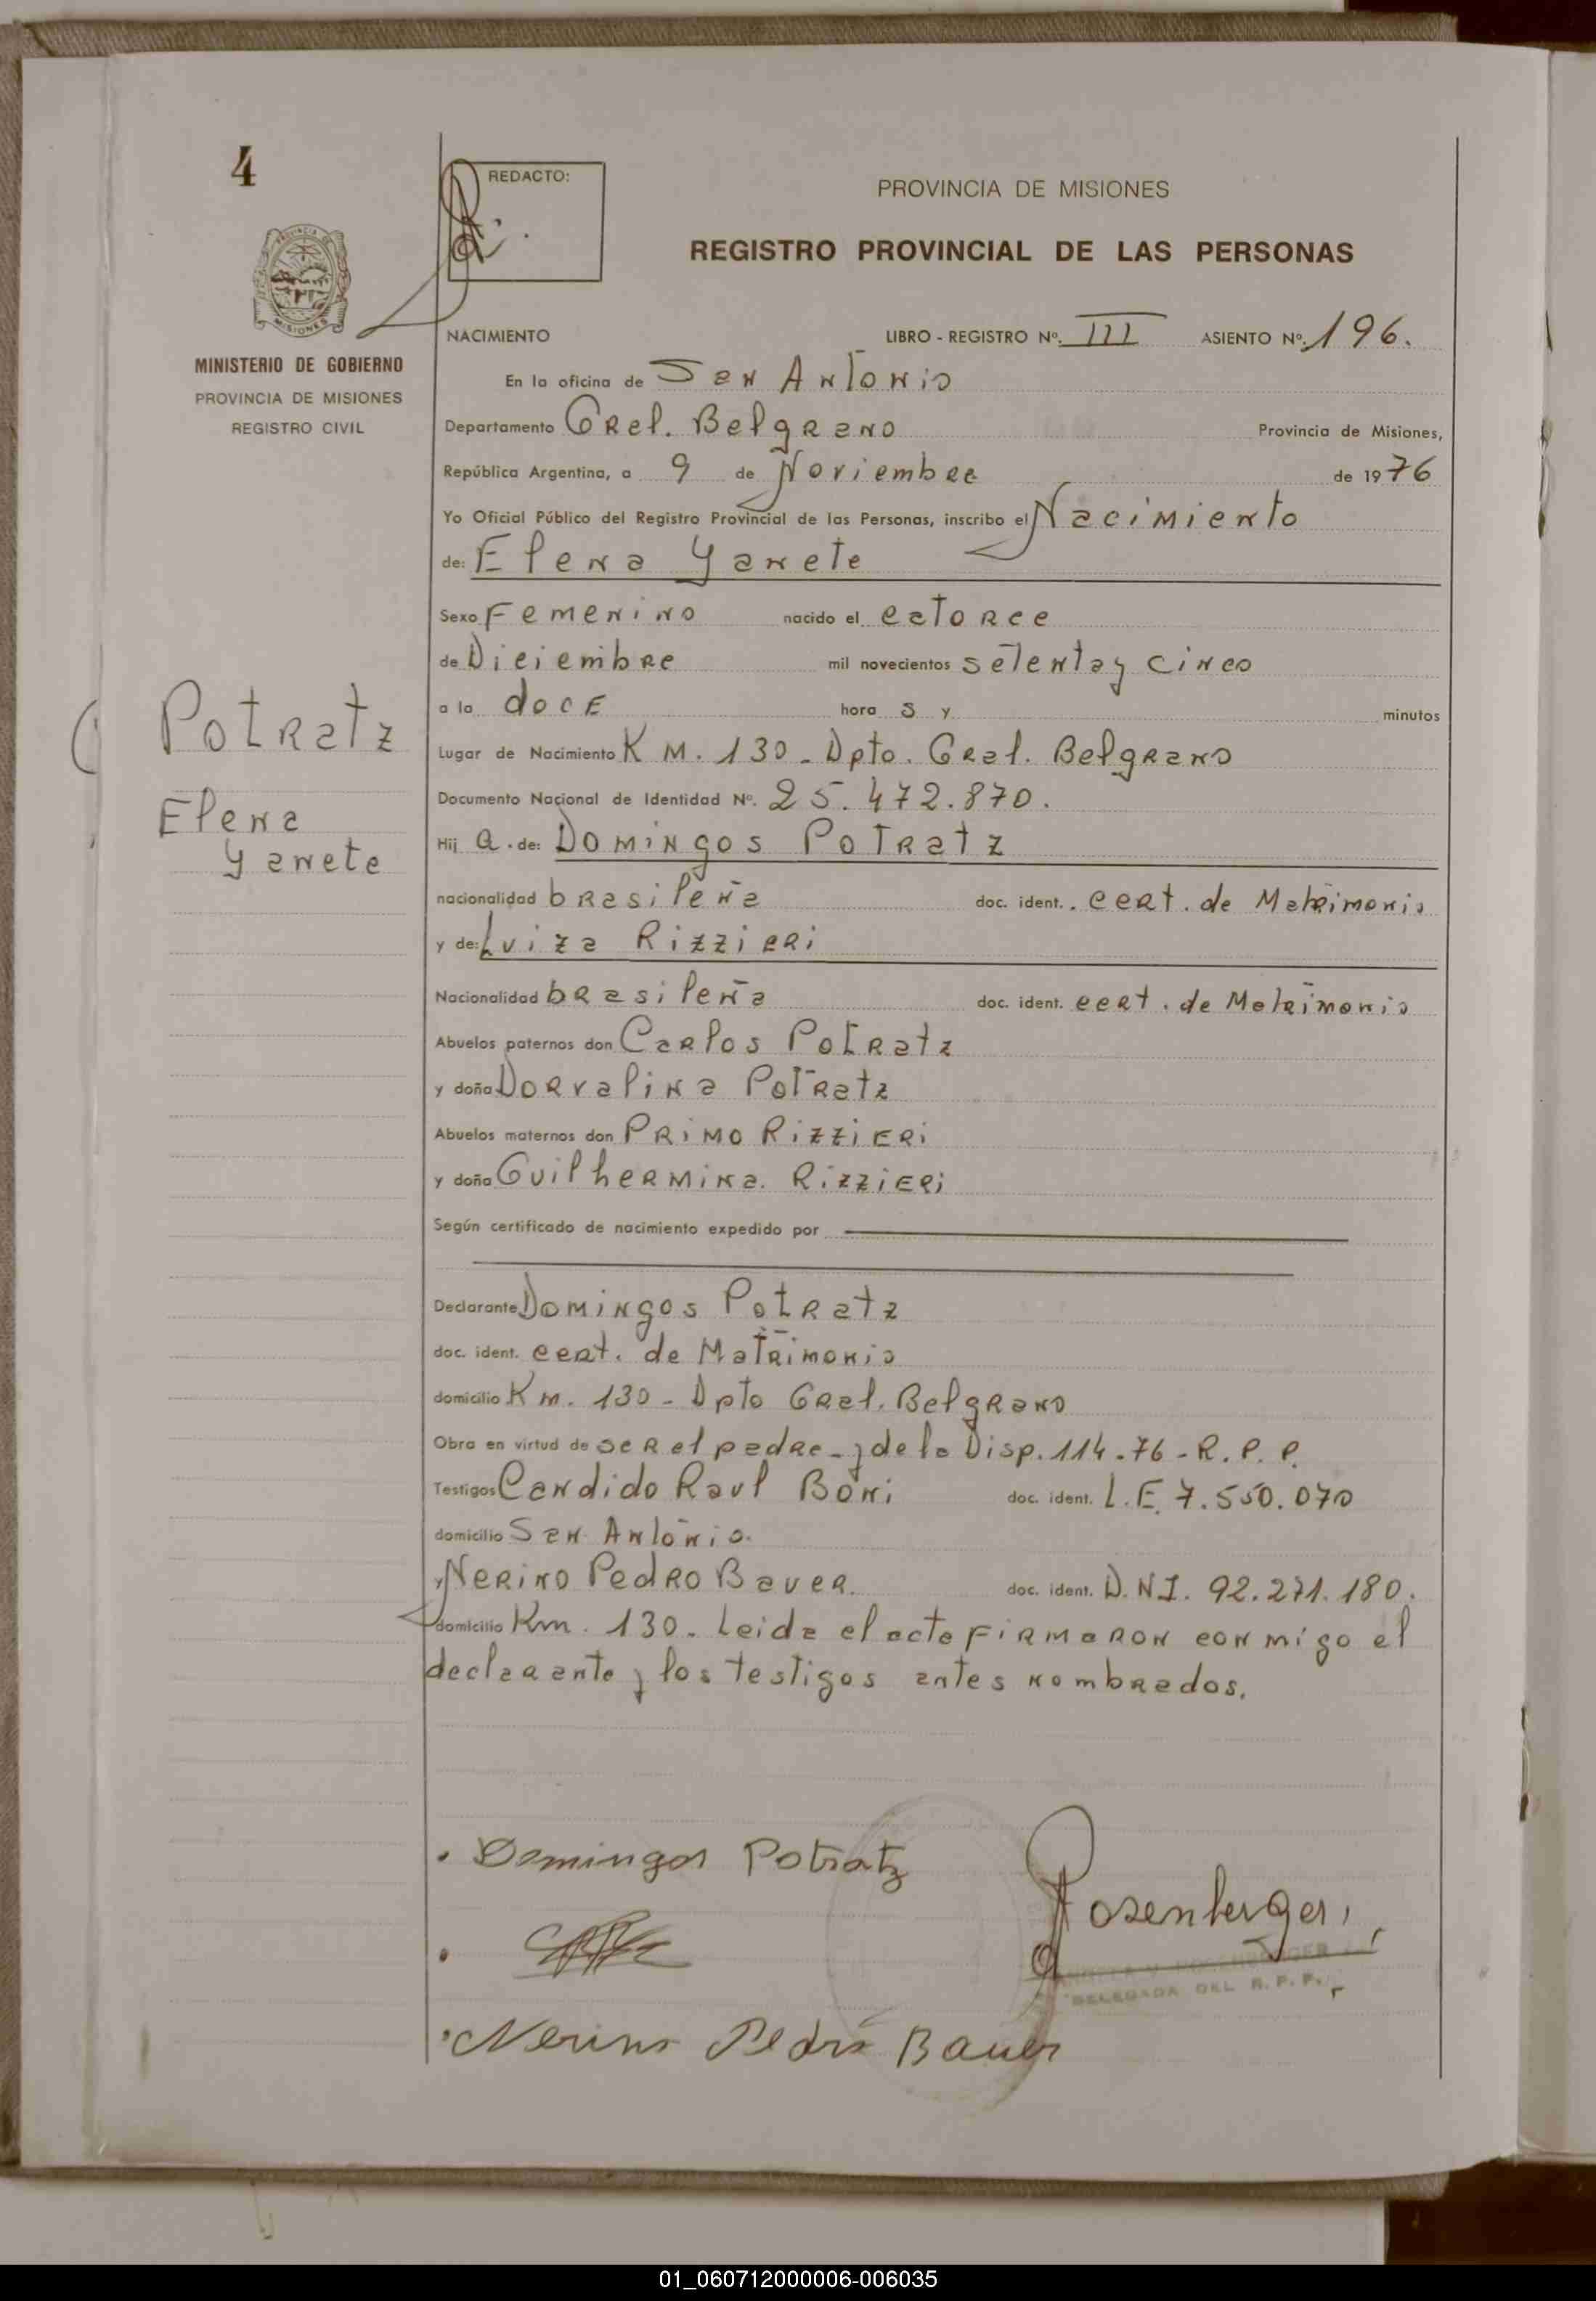 4
REDACTO:
PROVINCIA DE MISIONES
REGISTRO PROVINCIAL DE LAS PERSONAS
MISIONES
MINISTERIO DE GOBIERNO
PROVINCIA DE MISIONES
REGISTRO CIVIL
NACIMIENTO LIBRO - REGISTRO Nº. III ASIENTO Nº. 196.
En la oficina de San Antonio
Departamento Gral. Belgrano Provincia de Misiones,
República Argentina, a 9 de Noviembre de 1976
Yo Oficial Público del Registro Provincial de las Personas, inscribo el Nacimiento
de: Elena Yanete
Sexo Femenino nacido el catorce
de Diciembre mil novecientos setenta y cinco
a la doce hora s y minutos
Potratz
Elena
Yanete
Lugar de Nacimiento Km. 130 - Dpto. Gral. Belgrano
Documento Nacional de Identidad Nº. 25.472.870.
Hij a. de: Domingos Potratz
nacionalidad brasileña doc. ident. cert. de Matrimonio
y de: Luiza Rizzieri
Nacionalidad brasileña doc. ident. cert. de Matrimonio
Abuelos paternos don Carlos Potratz
y doña Dorvalina Potratz
Abuelos maternos don Primo Rizzieri
y doña Guilhermina. Rizzieri
Según certificado de nacimiento expedido por
Declarante Domingos Potratz
doc. ident. cert. de Matrimonio
domicilio Km. 130 - Dpto Gral. Belgrano
Obra en virtud de ser el padre - y de la Disp. 114-76 - R. P. P.
Testigos Candido Raul Boni doc. ident. L.E. 7.550.070
domicilio San Antonio.
y Nerino Pedro Bauer. doc. ident. D.N.I. 92.271.180.
domicilio Km. 130. Leida el acta firmaron conmigo el
declarante y los testigos antes nombrados.
Domingos Potratz
Rosenberger
ROSENBERGER
DELEGADA DEL R. P. P.
Nerino Pedro Bauer
01_060712000006-006035